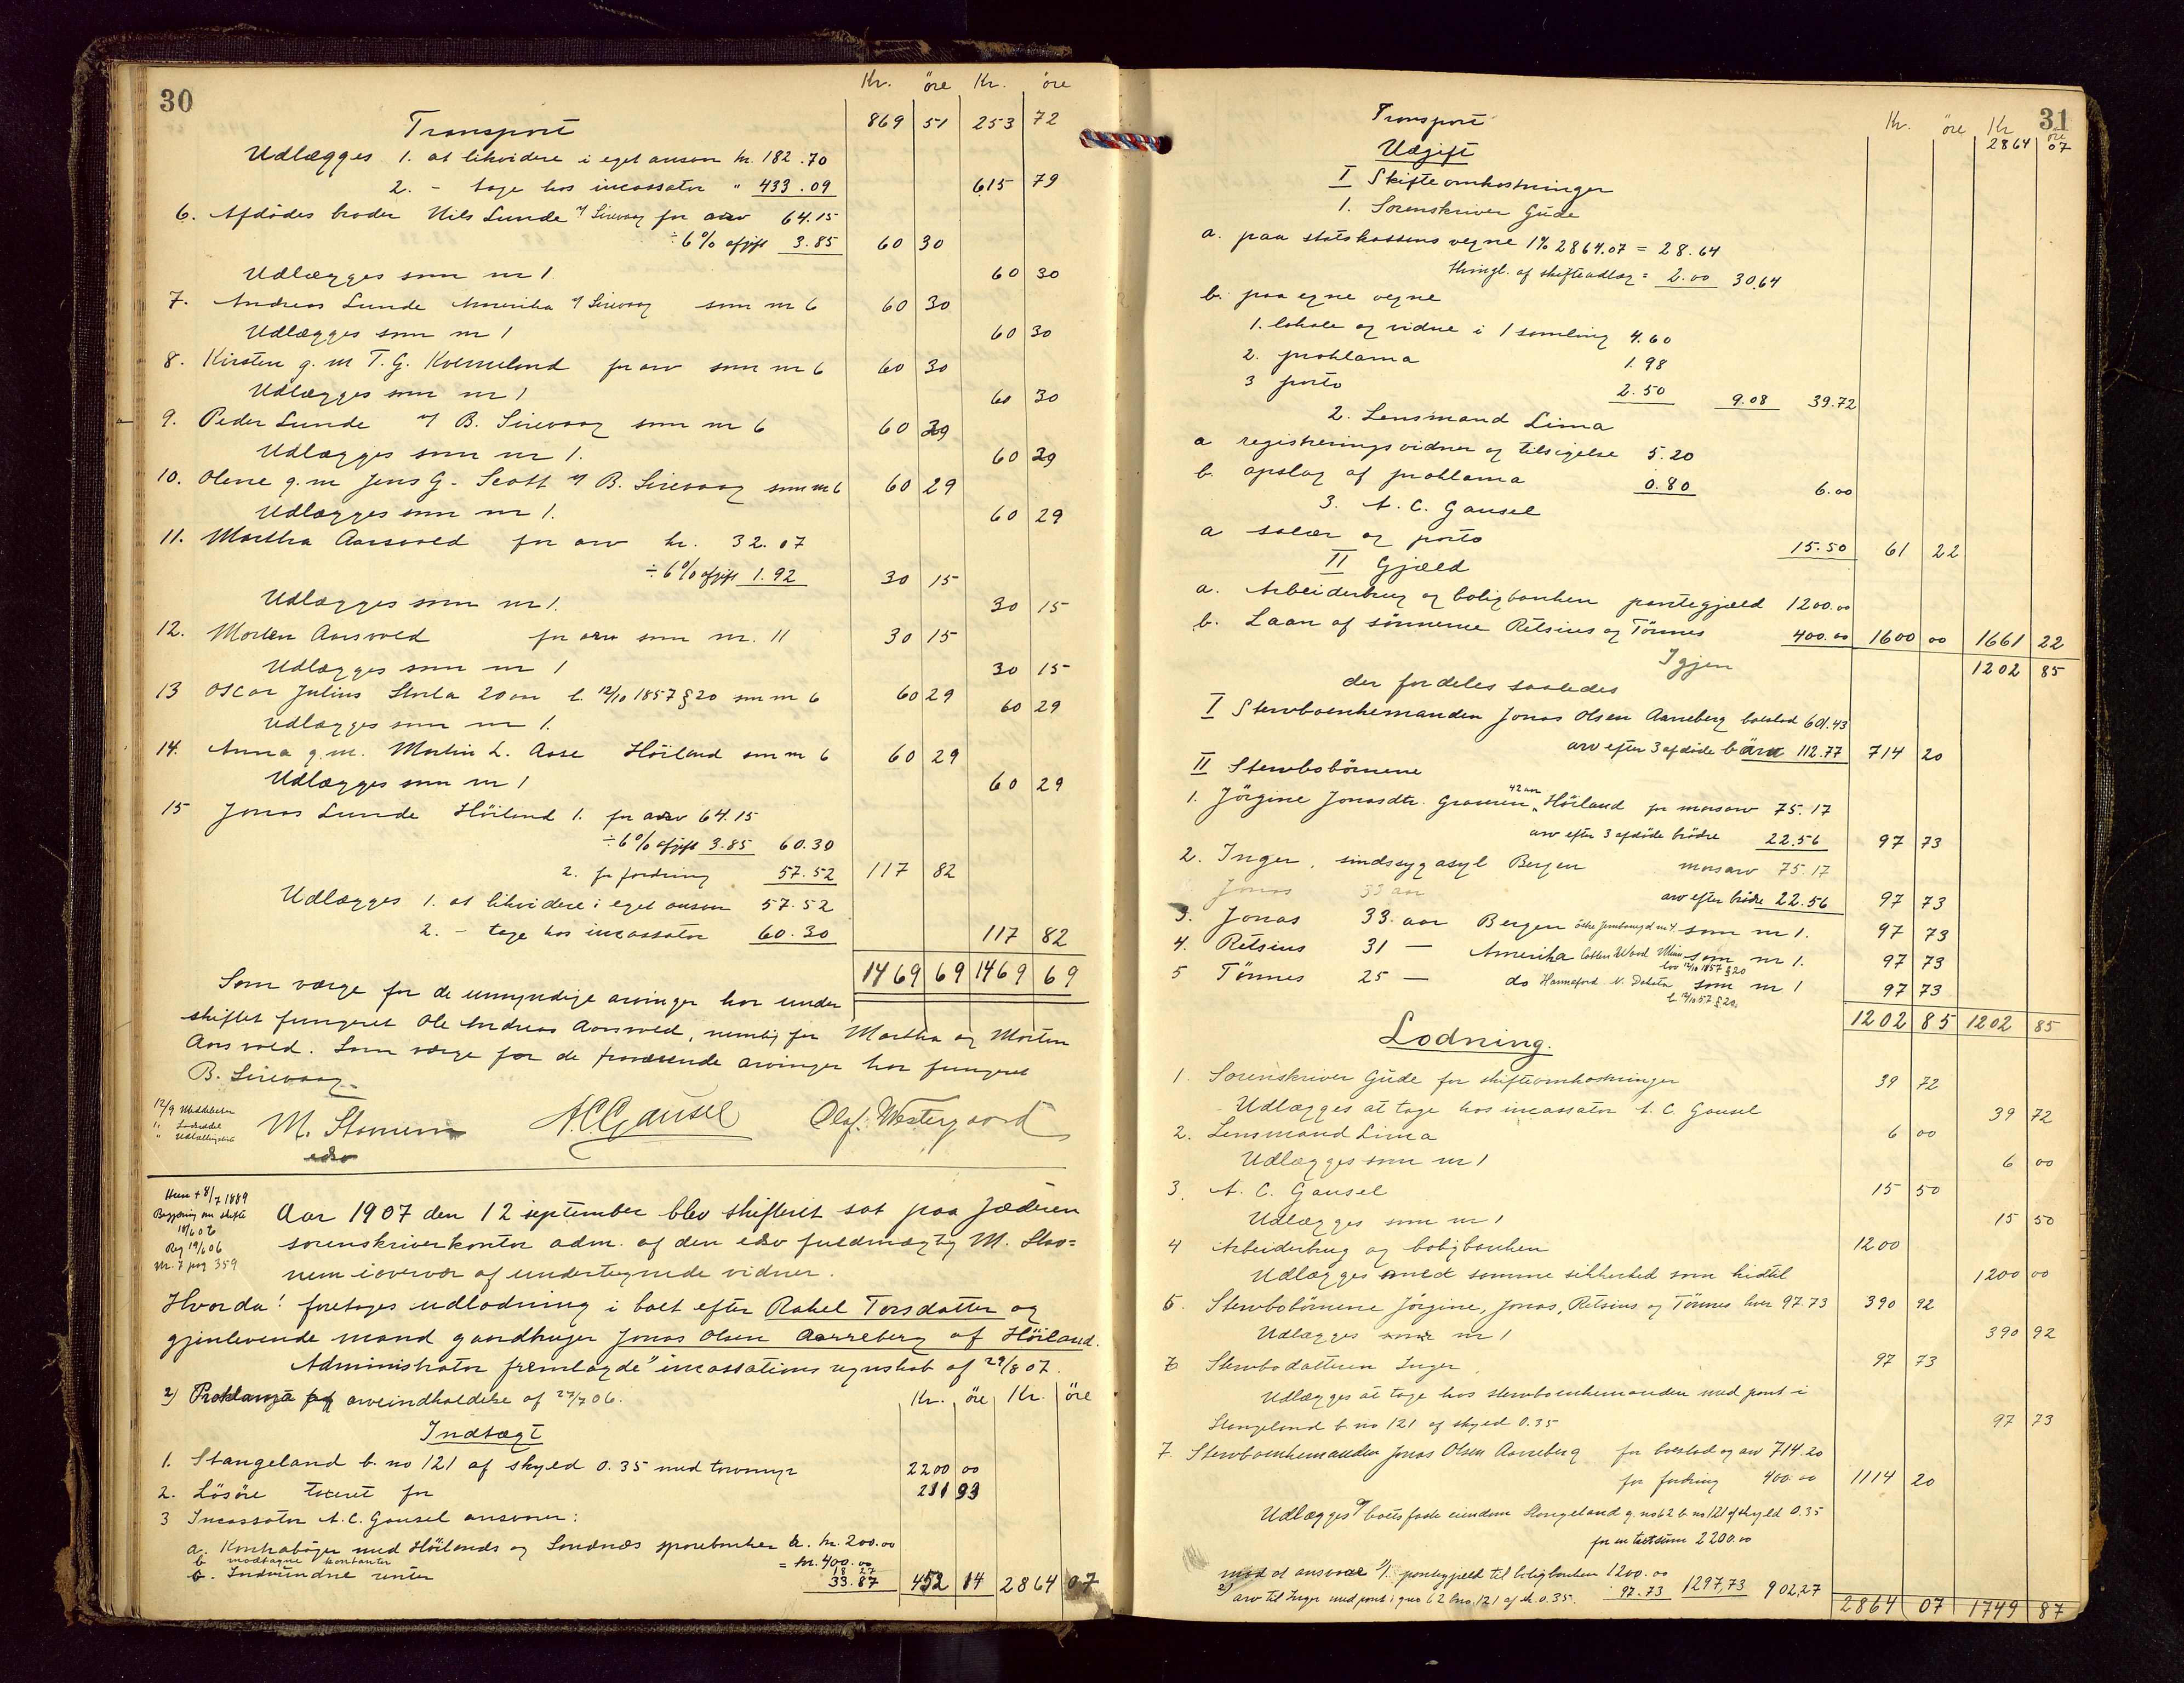 30
Kr. öre Kr. öre
Transport 869 51 253 72
Udlægges 1. at likvidere i eget ansvar kr. 182.70
2. - tage hos incassator " 433.09 615 79
6. Afdödes broder Nils Lunde Sirevaag for arv 64.15
÷ 6% afgift 3.85 60 30
Udlægges som nr 1. 60 30
7. Andreas Lunde Amerika Sirevaag som nr 6 60 30
Udlægges som nr 1 60 30
8. Kirsten g. m T. G. Kvernelund for arv som nr 6 60 30
Udlægges som nr 1 60 30
9. Peder Lunde B. Sirevaag som nr 6 60 29
Udlægges som nr 1. 60 29
10. Olene g. m Jens G. Scott B. Sirevaag som nr 6 60 29
Udlægges som nr 1. 60 29
11. Martha Aarsvold for arv kr. 32.07
÷ 6% afgift 1.92 30 15
Udlægges som nr 1. 30 15
12. Morten Aarsvold for arv som nr. 11 30 15
Udlægges som nr 1 30 15
13 Oscar Julius 20 aar l. 12/10 1857 § 20 som nr 6 60 29
Udlægges som nr 1. 60 29
14. Anna g. m. Martin L. Aase Höiland som nr 6 60 29
Udlægges som nr 1 60 29
15 Jonas Lunde Höiland 1. for arv 64.15
÷ 6% afgift 3.85 60.30
2. for fordring 57.52 117 82
Udlægges 1. at likvidere i eget ansvar 57.52
2. - tage hos incassator 60.30 117 82
1469 69 1469 69
Som værge for de umyndige arvinger har under
skiftet fungeret Ole Andreas Aarsvold, nemlig for Martha og Morten
Aarsvold. Som værge for de fraværende arvinger har fungeret
B. Sirevaag.
12/9
M. Stornem A.C. Gausel Olaf. Westergaard
edsv
Hun + 8/7 1889
Begjæring om skifte
18/6 06
Reg 19/6 06
nr. 7 pag 359
Aar 1907 den 12 september blev skifteret sat paa Jæderen
sorenskriverkontor adm. af den edsv fuldmægtig M. Stor=
nem i overvær af undertegnede vidner.
Hvorda: foretoges udlodning i boet efter Rakel Torsdatter og
gjenlevende mand gaardbruger Jonas Olsen Aarreberg af Höiland.
Administrator fremlagde 1) incassations regnskab af 29/8 07.
2) Proklama arveindkaldelse af 27/7 06. Kr. öre Kr. öre
Indtægt
1. Stangeland b. no 121 af skyld 0.35 med torvmyr 2200 00
2. Lösöre taxeret for 211 93
3 Incassator A. C. Gausel ansvarer:
a. Kontraböger med Höilands og Sandnæs sparebanker kr. 200.00
b modtagne kontanter = kr. 400.00
18 27
c. Indvundne renter 33.87 452 14 2864 07
31
Transport Kr. öre Kr öre
2864 07
Udgift
I Skifteomkostninger
1. Sorenskriver Gude
a. paa statskassens vegne 1% 2864.07 = 28.64
thingl. af skifteudlæg = 2.00 30.64
b. paa egne vegne
1. lokale og vidne i 1 samling 4.60
2. proklama 1.98
3 porto 2.50 9.08 39.72
2. Lensmand Lima
a registreringsvidner og tilsigelse 5.20
b. opslag af proklama 0.80 6.00
3. A. C. Gausel
a salær og porto 15.50 61 22
II Gjæld
a. Arbeiderbrug og boligbanken pantegjæld 1200.00
b. Laan af sönnerne Retsius og Tönnes 400.00 1600 00 1661 22
Igjen 1202 85
der fordeles saaledes
I Stervboenkemanden Jonas Olsen Aarreberg boeslod 601.43
arv efter 3 afdöde börn 112.77 714 20
II Stervbobörnene
1. Jörgine Jonasdtr. Graveren 42 aar Höiland for morsarv 75.17
arv efter 3 afdöde brödre 22.56 97 73
2. Inger, sindssygasyl Bergen morsarv 75.17
Jonas 33 aar arv efter brödre 22.56 97 73
3. Jonas 33 aar Bergen som nr 1. 97 73
4. Retsius 31 — Amerika Cotton Wood Minn som nr 1. 97 73
lov 12/10 1857 § 20
5 Tönnes 25 — do Hannaford N. Dakota som nr 1 97 73
l. 12/10 57 § 20
1202 85 1202 85
Lodning.
1. Sorenskriver Gude for skifteomkostninger 39 72
Udlægges at tage hos incassator A. C. Gausel 39 72
2. Lensmand Lima 6 00
Udlægges som nr 1 6 00
3. A. C. Gausel 15 50
Udlægges som nr 1 15 50
4 Arbeiderbrug og boligbanken 1200
Udlægges med samme sikkerhed som hidtil 1200 00
5. Stervbobörnene Jörgine, Jonas, Retsius og Tönnes hver 97.73 390 92
Udlægges som nr 1 390 92
6 Stervbodatteren Inger 97 73
Udlægges at tage hos stervboenkemanden med pant i
Stangeland b. no 121 af skyld 0.35 97 73
7. Stervboenkemanden Jonas Olsen Aarreberg for boeslod og arv 714.20
for fordring 400.00 1114 20
Udlægges boets faste eiendom Stangeland g. no 62 b. no 121 af skyld 0.35
for en taxtsum 2200.00
mod at ansvare 1/. pantegjæld til boligbanken 1200.00
2) arv til Inger med pant i gno 62 bno. 121 af sk. 0.35. 97.73 1297,73 902,27
2864 07 1749 87